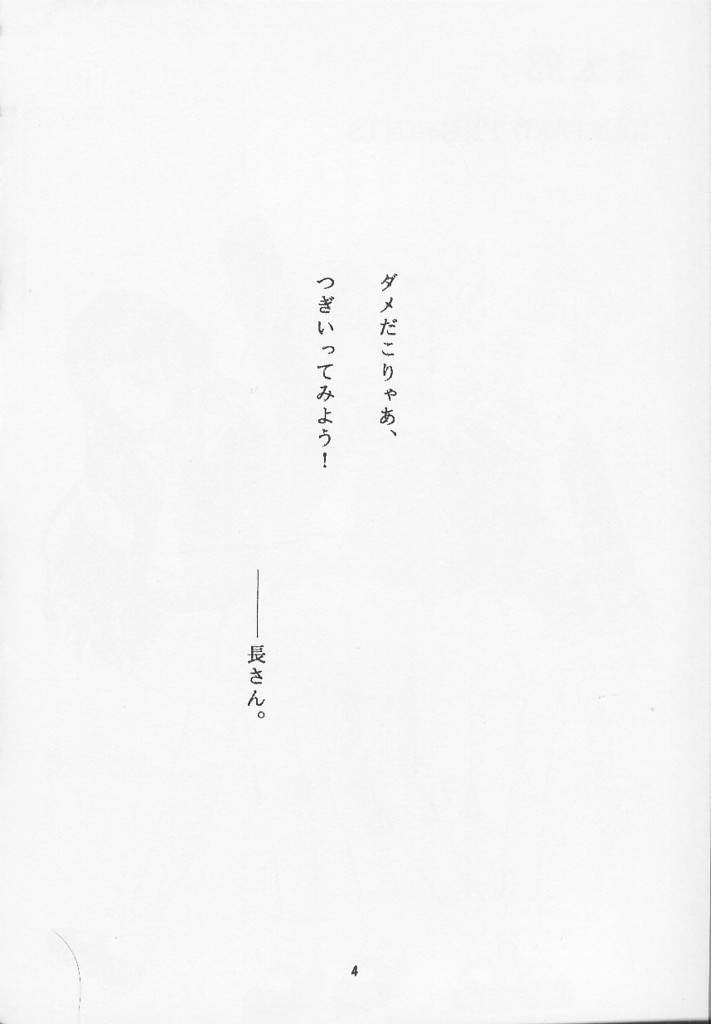 ダメだこりゃあ、
つぎいってみよう！
――長さん。
4